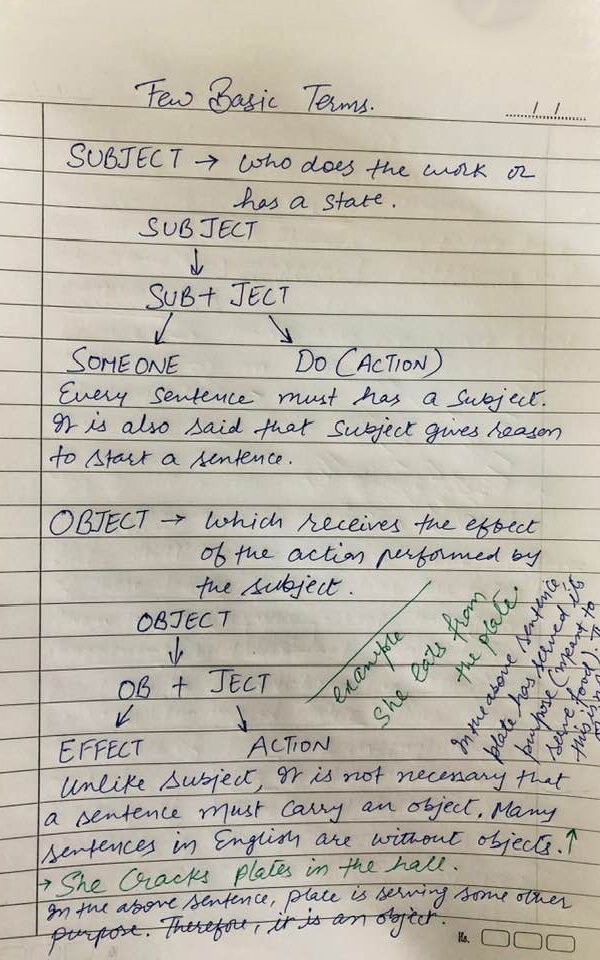 Few Basic Terms.
SUBJECT → Who does the work or
has a state.
SUBJECT
↓
SUB + JECT
SOMEONE DO (ACTION)
Every sentence must has a subject.
It is also said that subject gives reason
to start a sentence.
OBJECT → Which receives the effect
of the action performed by
the subject.
OBJECT
↓
OB + JECT
EFFECT ACTION
example
She eats from
the plate.
In the above sentence
plate has served its
purpose (meant to
serve food).
this is
Unlike subject, It is not necessary that
a sentence must carry an object. Many
sentences in English are without objects.↑
→ She cracks plates in the hall.
In the above sentence, plate is serving some other
purpose. Therefore, it is an object.
No.